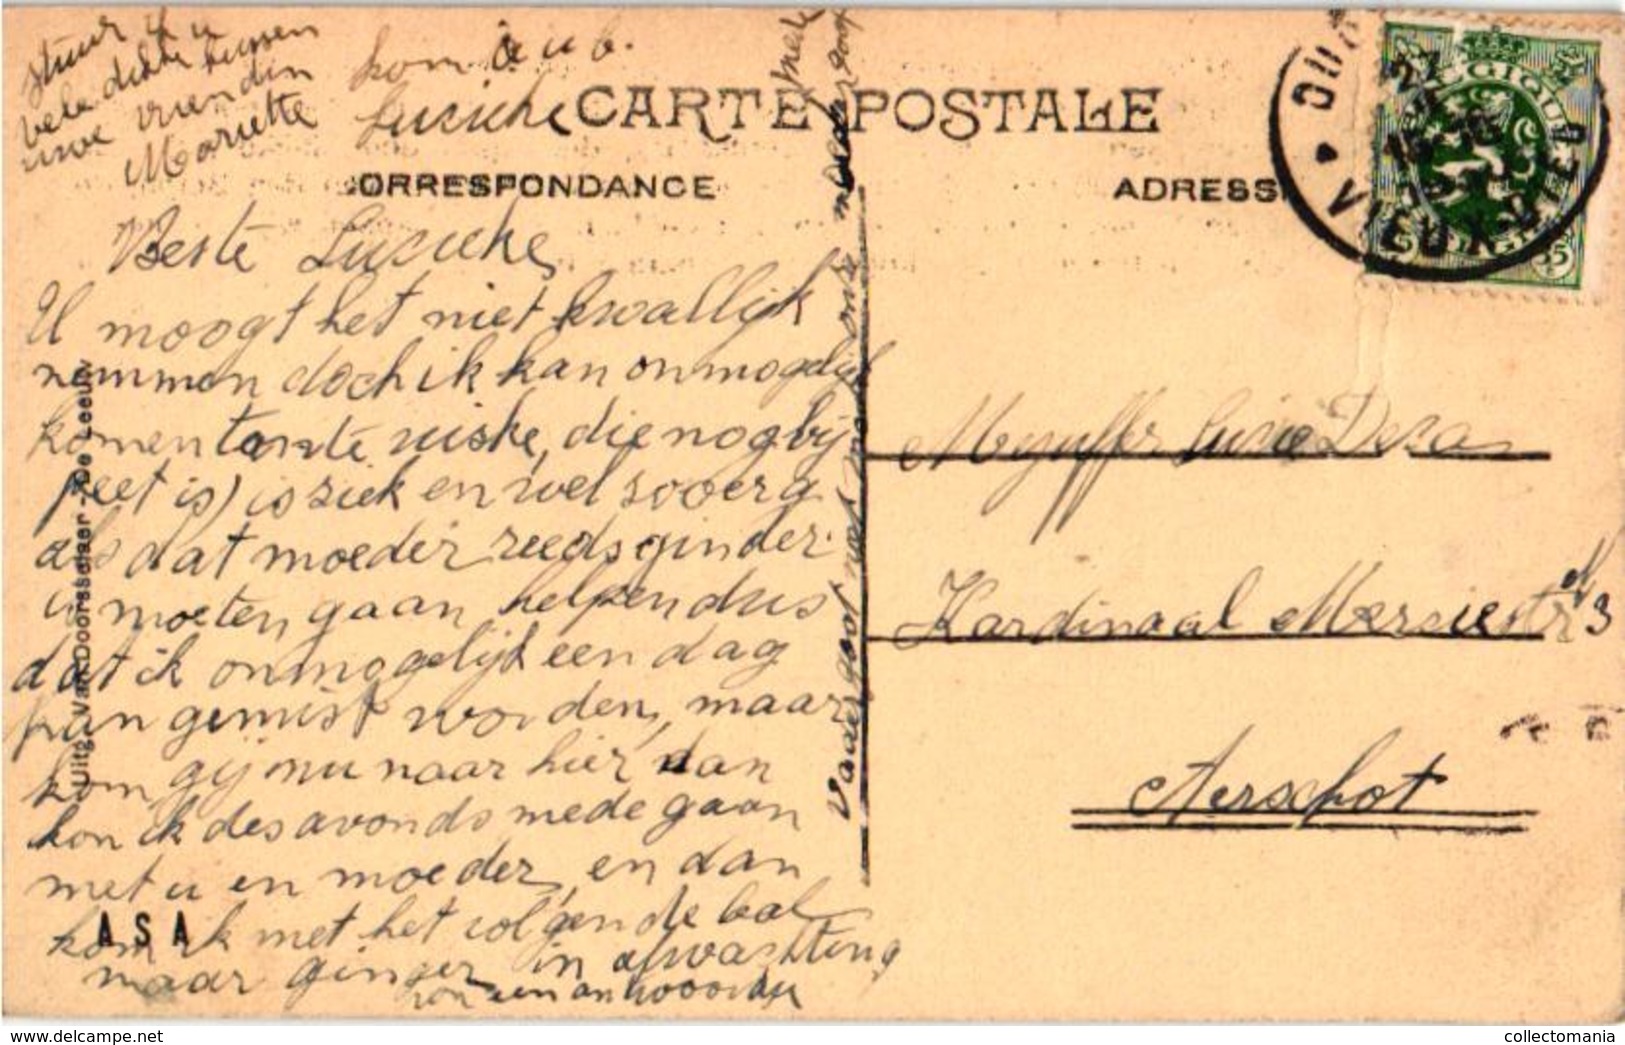 CARTE POSTALE
CORRESPONDANCE
ADRESSE
Beste Lucieke,
U moogt het niet kwallijk
nemmen doch ik kan onmogelijk
komen tante , die nog bij
peet is) is ziek en wel zooerg
als dat moeder reeds ginder
is moeten gaan helpen dus
dat ik onmogelijk een dag
kan gemist worden, maar
kom gij nu naar hier, dan
kon ik des avonds mede gaan
met u en moeder, en dan
kom ik met het volgende bal
naar ginger, in afwachting
van een andwoord
stuur ik u
vele dikke kussen
uwe vriendin
Mariette
kom a u b.
Lucieke
Vaders gaat niet
moeder
Mejuffer Lucie
Kardinaal Mersiestr N 3
Aerschot
Uitg. Van Doorsselaer - De Leeuw
ASA
BELGIQUE
BELGIË
35
VIEUX-DIEU
collectomania